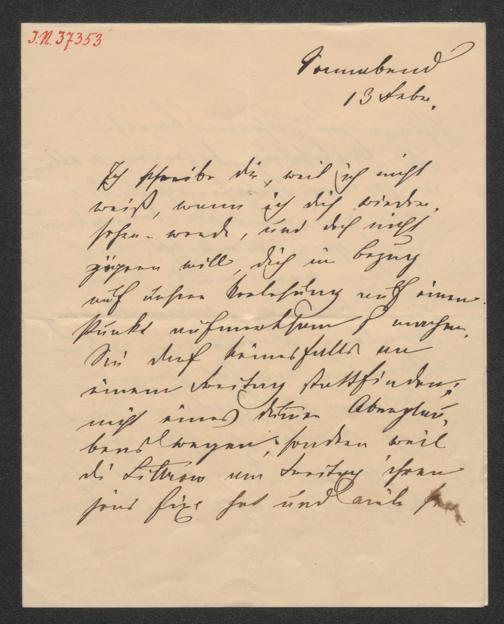 J.N. 37353
Sonnabend
13 Febr.
Ich schreibe dir, weil ich nicht
weiß, wann ich dich wieder-
sehen werde, und doch nicht
zögern will, dich in bezug
auf unsere Vorlesung auf einen
Punkt aufmerksam z machen.
Sie darf keinesfalls an
einem Freitag stattfinden,
nicht eines Aberglau-
bens wegen, sondern weil
die Littrow am Freitag ihren
jour fixe hat und viele